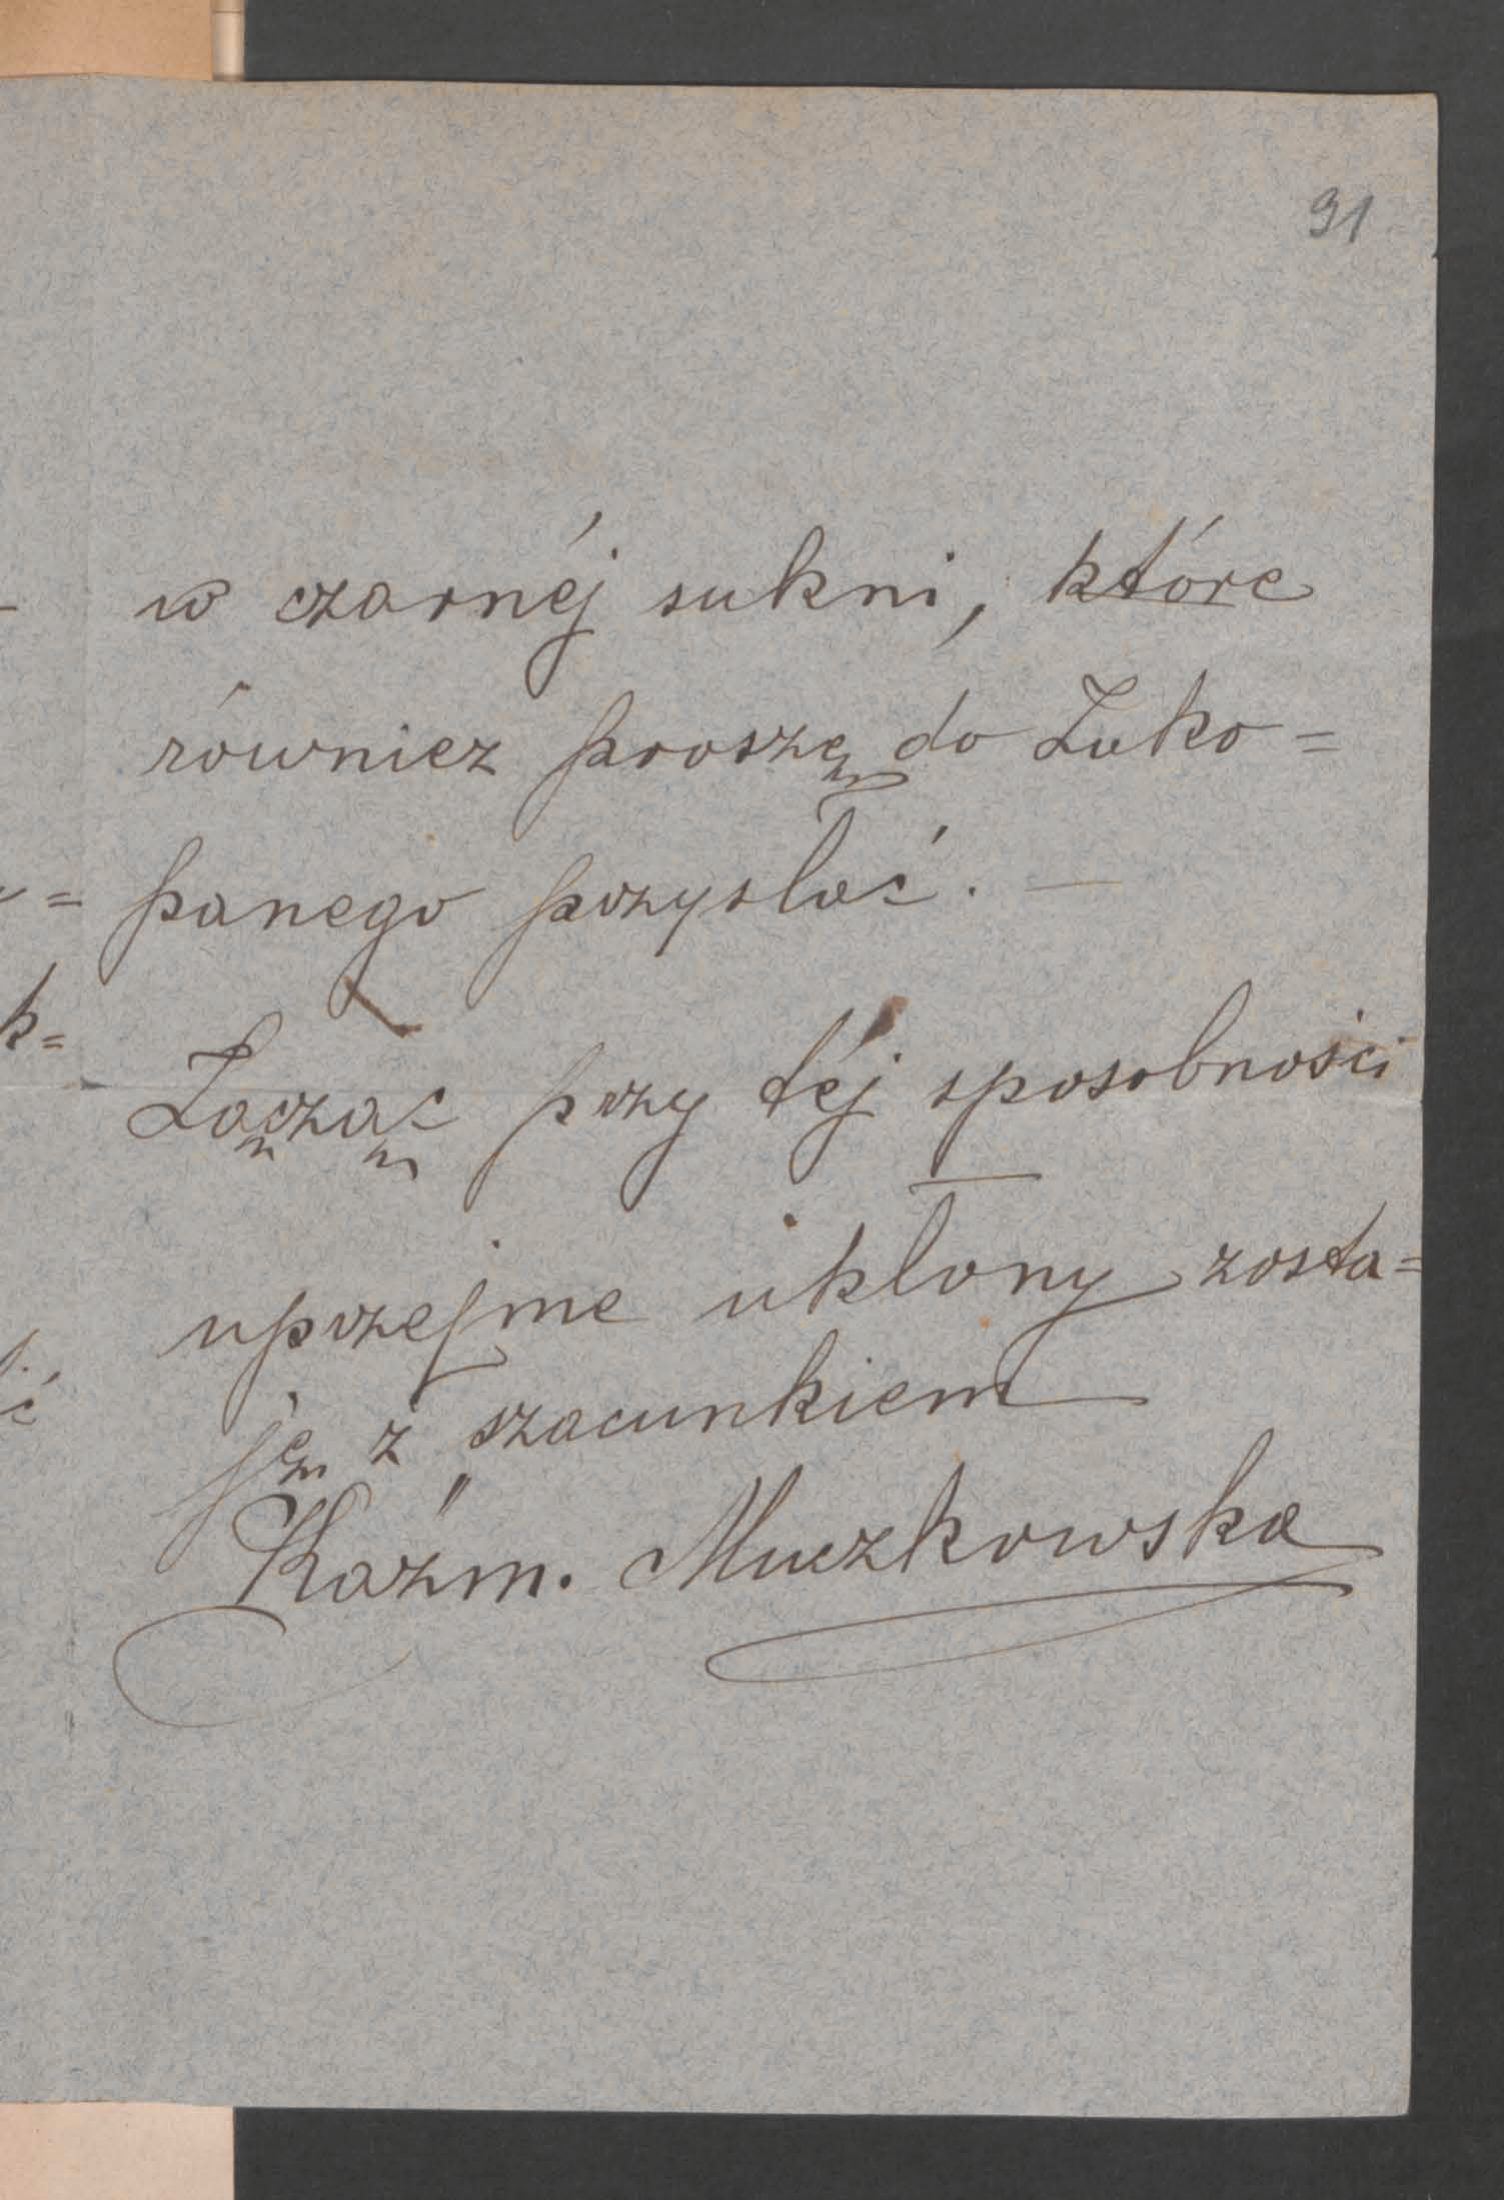 91
w czarnéj sukni, które
równiez proszę do Zako=
panego przysłać. —
Łącząc przy téj sposobności
uprzejme ukłony zosta=
ję z szacunkiem
Kaźm. Muczkowska